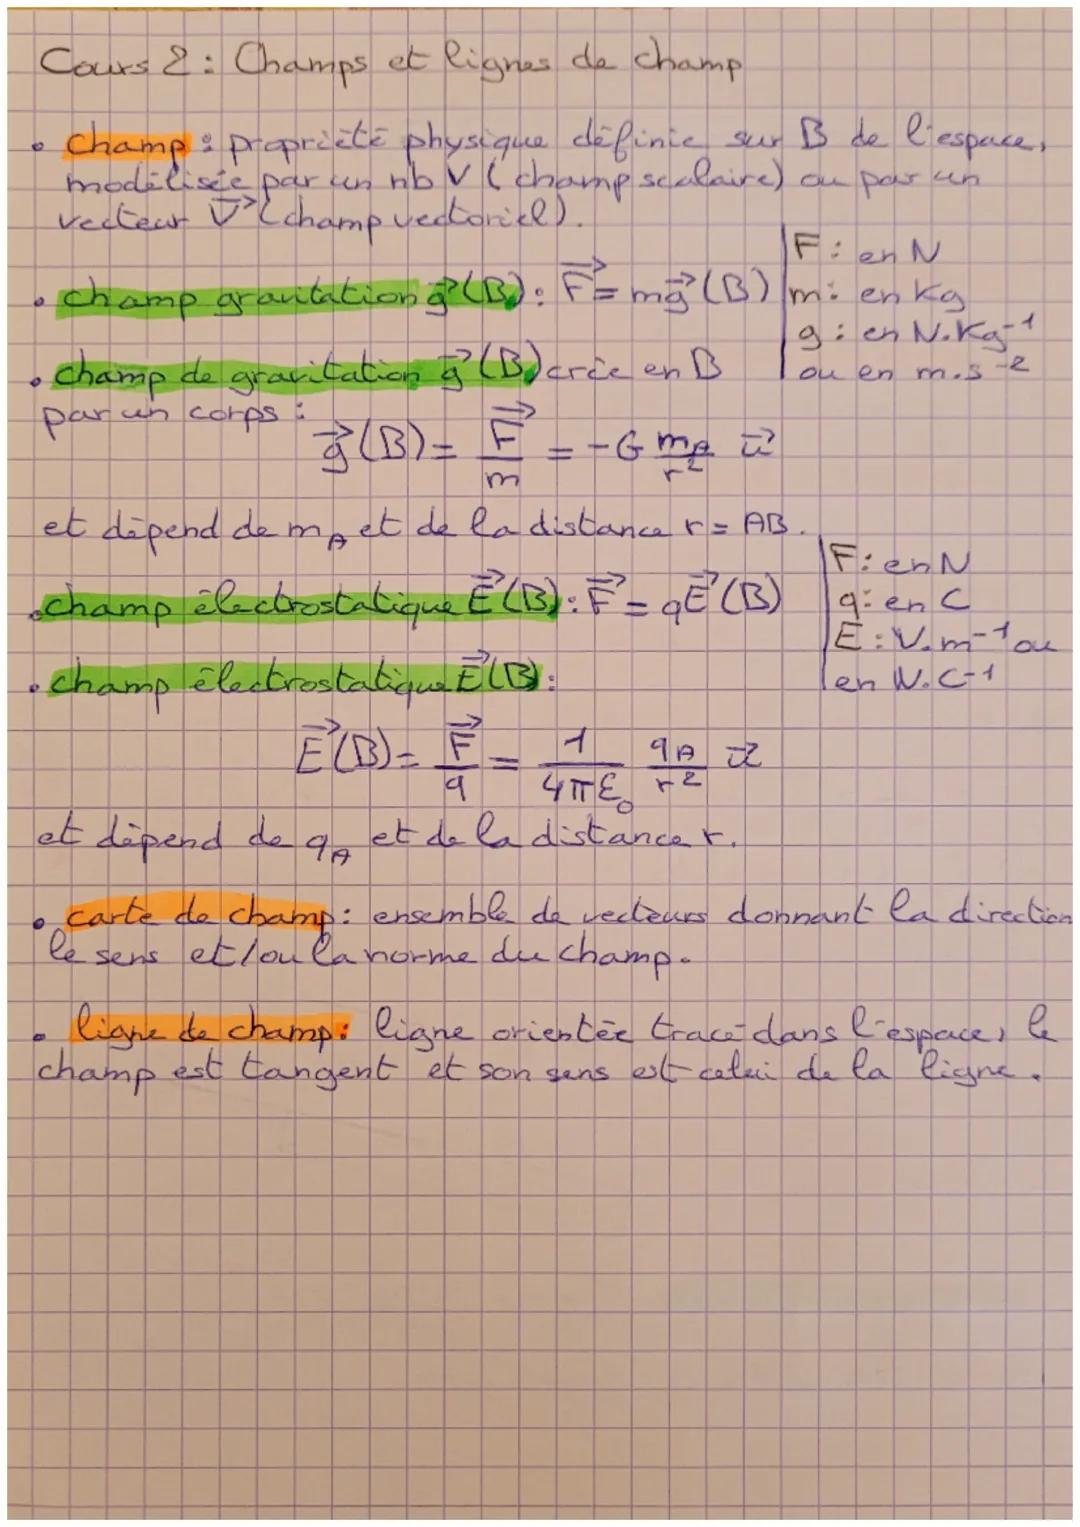 Cours 2 : Champs et lignes de champ
• champ : propriété physique définie sur B de l'espace,
modélisée par un nb V (champ scalaire) ou par un
vecteur V⃗ (champ vectoriel).
• champ gravitation g⃗(B) : F⃗ = mg⃗(B)
F : en N
m : en kg
g : en N.kg⁻¹
ou en m.s⁻²
• champ de gravitation g⃗(B) crée en B
par un corps :
g⃗(B) = F⃗/m = -G m_A/r² u⃗
et dépend de m_A et de la distance r = AB.
• champ électrostatique E⃗(B) : F⃗ = qE⃗(B)
F : en N
q : en C
E : V.m⁻¹ ou
en N.C⁻¹
• champ électrostatique E⃗(B) :
E⃗(B) = F⃗/q = 1/4πε₀ q_A/r² u⃗
et dépend de q_A et de la distance r.
• carte de champ : ensemble de vecteurs donnant la direction
le sens et/ou la norme du champ.
• ligne de champ : ligne orientée tracé dans l'espace, le
champ est tangent et son sens est celui de la ligne.